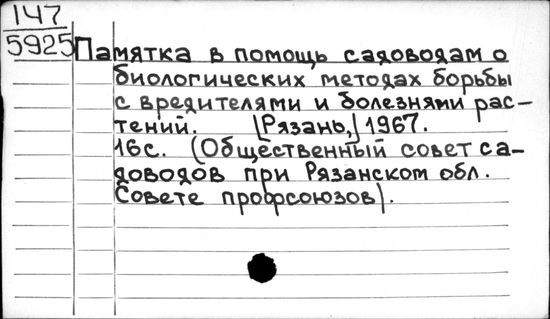 147
5925
Памятка в помощь садоводам о
биологических методах борьбы
с вредителями и болезнями рас-
тений. [Рязань,] 1967.
16с. (Общественный совет са-
доводов при Рязанском обл.
Совете профсоюзов).